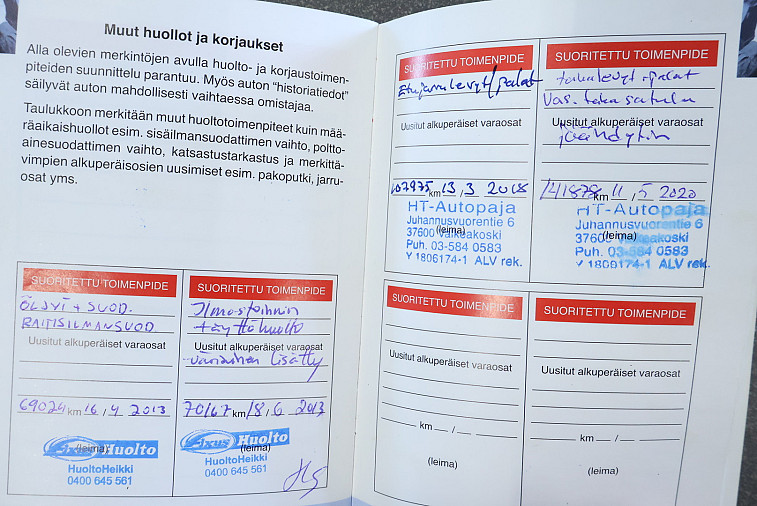 Muut huollot ja korjaukset
Alla olevien merkintöjen avulla huolto- ja korjaustoimen-
piteiden suunnittelu parantuu. Myös auton "historiatiedot"
säilyvät auton mahdollisesti vaihtaessa omistajaa.
Taulukkoon merkitään muut huoltotoimenpiteet kuin mää-
räaikaishuollot esim. sisäilmansuodattimen vaihto, poltto-
ainesuodattimen vaihto, katsastustarkastus ja merkittä-
vimpien alkuperäisosien uusimiset esim. pakoputki, jarru-
osat yms.
SUORITETTU TOIMENPIDE
ÖLJYT + SUOD.
RAITISILMANSUOD.
Uusitut alkuperäiset varaosat
69024 km 16 / 4 2013
Sixus Huolto
(leima)
HuoltoHeikki
0400 645 561
SUORITETTU TOIMENPIDE
Ilmastoinnin
täyttöhuolto
Uusitut alkuperäiset varaosat
väriaine lisätty
70167 km 18 / 6 2013
Sixus Huolto
(leima)
HuoltoHeikki
0400 645 561
SUORITETTU TOIMENPIDE
Etujarrulevyt/palat
Uusitut alkuperäiset varaosat
107975 km 13 / 3 2018
HT-Autopaja
Juhannusvuorentie 6
(leima)
37600 Valkeakoski
Puh. 03-584 0583
Y 1806174-1 ALV rek.
SUORITETTU TOIMENPIDE
takalevyt + palat
Vas. taka satula
Uusitut alkuperäiset varaosat
jäähdytin
141878 km 11 / 5 2020
HT-Autopaja
Juhannusvuorentie 6
(leima)
37600 Valkeakoski
Puh. 03-584 0583
Y 1806174-1 ALV rek.
SUORITETTU TOIMENPIDE
Uusitut alkuperäiset varaosat
km /
(leima)
SUORITETTU TOIMENPIDE
Uusitut alkuperäiset varaosat
km /
(leima)